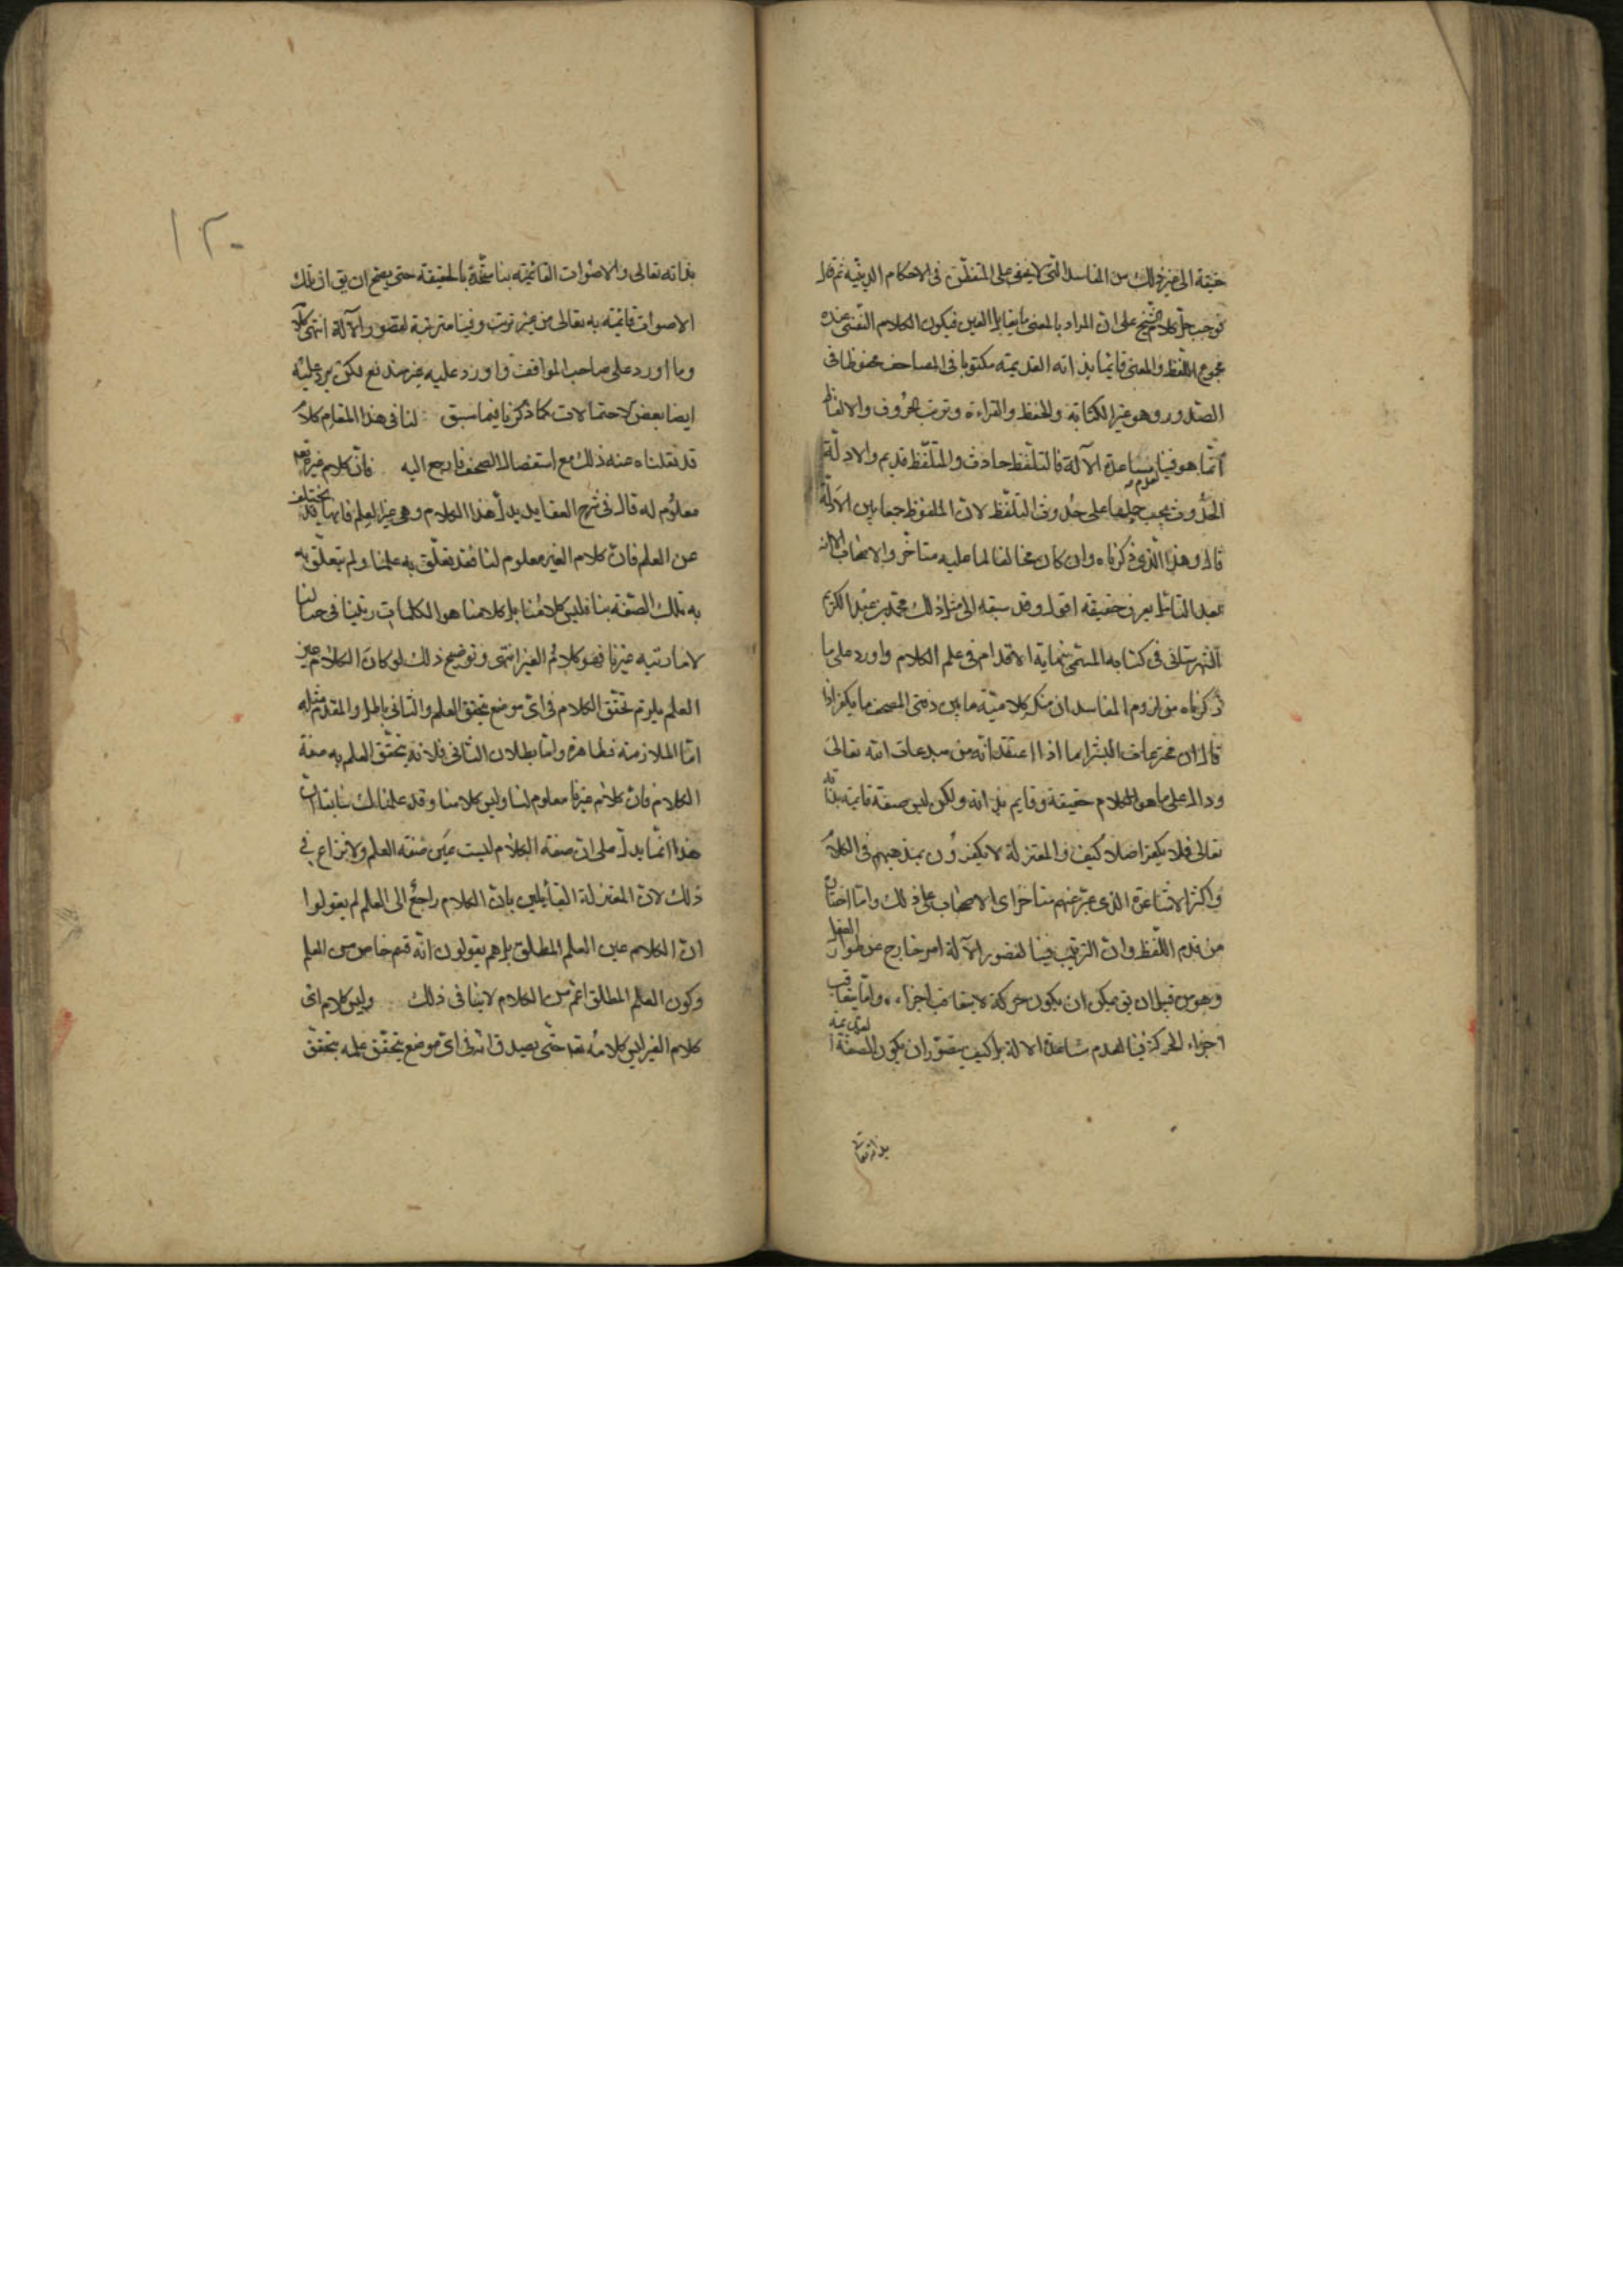 حقيقة الى غير ذلك من المفاسد التى لا يخفى على المتفطن فى الاحكام الدينية ثم قال
فوجب حمل كلام الشيخ على ان المراد بالمعنى ما يقابل العين فيكون الكلام النفسى عنده
مجموع اللفظ والمعنى قائما بذاته القديمة مكتوبا فى المصاحف محفوظا فى
الصدور وهو غير الكتابة والحفظ والقراءة وترتب الحروف والالفاظ
انما هو فينا لعدم مساعدة الآلة فالتلفظ حادث والمتلفظ قديم والادلة
الحدوث يجب حملها على حدوث التلفظ لان الملفوظ جمعا بين الادلة
قال وهذا الذى ذكرناه وان كان مخالفا لما عليه متأخروا الاصحاب الا انه
بعد التأمل يعرف حقيقة اقول وقد سبقه الى مثل ذلك محمد بن عبد الكريم
الشهرستانى فى كتابه المسمى بنهاية الاقدام فى علم الكلام واورد على ما
ذكرناه من لزوم المفاسد ان منكر كلامية ما بين دفتى المصحف ما يكفر اذا
قال ان مخترعات البشر اما اذا اعتقد انه من مبدعات الله تعالى
ودال على ما هو الكلام حقيقة وقايم بذاته ولكن ليس صفة قايمة بذاته
تعالى فلا يكفر اصلا كيف والمعتزلة لا يكفرون بمذهبهم فى الكلام
واكثر الاشاعرة الذى عبر عنهم متأخرى الاصحاب على ذلك واما اختاره
من قدم اللفظ وان الترتيب فينا لقصور الآلة امر خارج عن طوار العقل
وهو من قبيل ان يق يمكن ان يكون حركة لا يتعاقب اجزاءه وانما يتعاقب
اجزاء الحركة فينا لعدم مساعدة الالة بل كيف يتصور ان يكون الصفة القديمة
بذاته تعالى
١٢٠
بذاته تعالى والاصوات القائمة بنا متحدة بالحقيقة حتى يصح ان يق ان تلك
الاصوات قائمة به تعالى من غير ترتب وفينا مترتبة لقصور الآلة انتهى كلامه
وما اورد على صاحب المواقف واورد عليه غير مندفع لكن يرد عليه
ايضا بعض الاحتمالات كما ذكرنا فيما سبق لنا فى هذا المقام كلام
قد نقلناه عنه ذلك مع استقصاء لا الصحف فارجع اليه فان كلام غيره تعالى
معلوم له قال فى شرح العقايد يدل هذا الكلام وهى غير العلم فانها قد يختلف
عن العلم فان كلام الغير معلوم لنا فقد تعلق به علمنا ولم تتعلق به
به تلك الصفة بنا فليس كلامنا بل كلامنا هو الكلمات رتبنا فى خيالنا
لا ما رتبه غيرنا فهو كلام الغير انتهى وتوضيح ذلك لو كان الكلام عين
العلم يلزم تحقق الكلام فى اى موضع تحقق العلم والثانى باطل والمقدم مثله
اما الملازمة فظاهرة واما بطلان الثانى فلانه تحقق العلم به صفة
الكلام فان كلام غيرنا معلوم لنا وليس كلامنا وقد علمنا
هذا انما يدل على ان صفة الكلام ليست عين صفة العلم ولا نزاع فى
ذلك لان المعتزلة القائلين بان الكلام راجع الى العلم لم يقولوا
ان الكلام عين العلم المطلق بل هم يقولون انه قسم خاص من العلم
وكون العلم المطلق اعم من الكلام لا ينافى ذلك وليس كلام اى
كلام الغير ليس كلامه تعد حتى يصدق انه فى اى موضع تحقق علمه تحقق